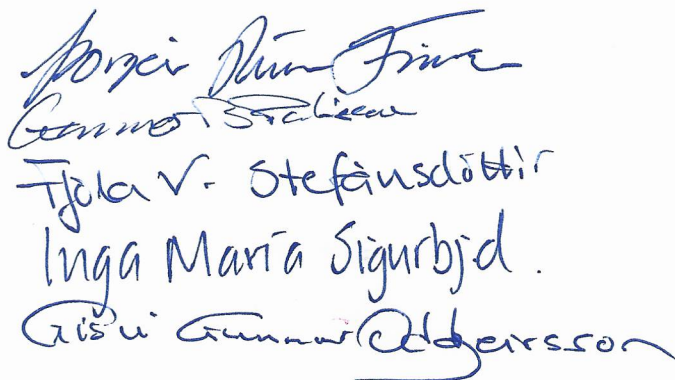 Þorgeir Rúnar Finns
Gunnar
Fjóla V. Stefánsdóttir
Inga María Sigurbjd.
Gísli Gunnar Oddgeirsson